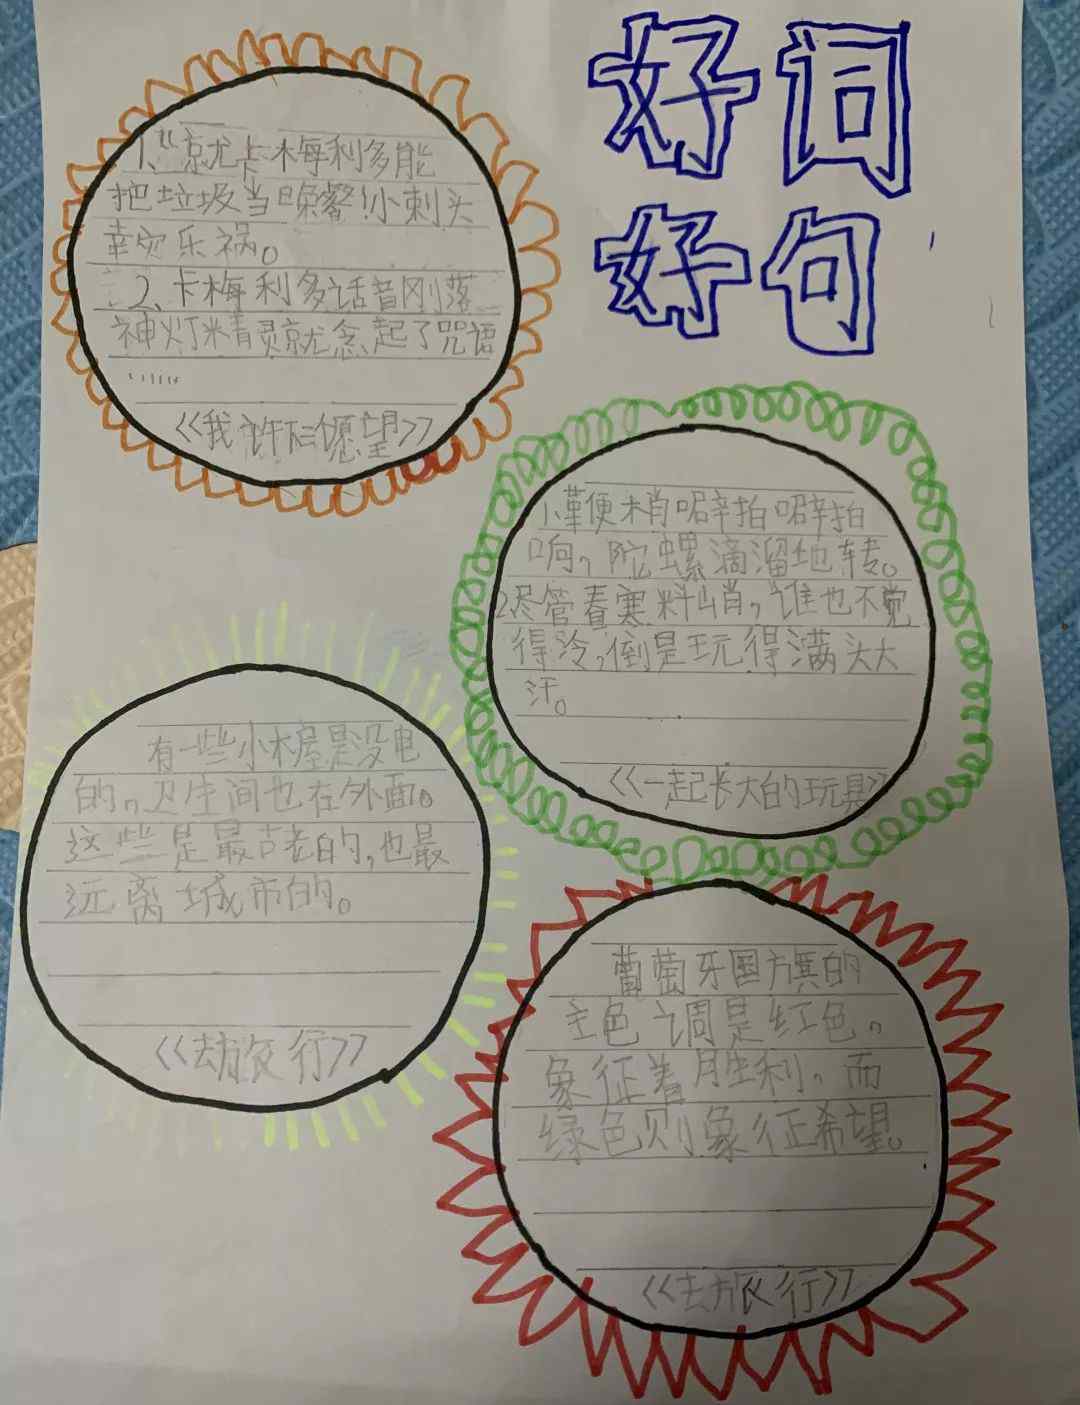 好词
好句
1、“就卡梅利多能
把垃圾当晚餐!小刺头
幸灾乐祸。
2、卡梅利多话音刚落
神灯米青灵就念起了咒语
……
《我许下三个愿望》
1.革便梢噼拍噼拍
响,陀螺滴溜地转。
2尽管春寒料峭,谁也不觉
得冷,倒是玩得满头大
汗。
《一起长大的玩具》
有一些小木屋是没电
的,卫生间也在外面。
这些是最古老的,也最
远离城市的。
《去旅行》
葡萄牙国旗的
主色调是红色,
象征着胜利,而
绿色则象征希望。
《去旅行》